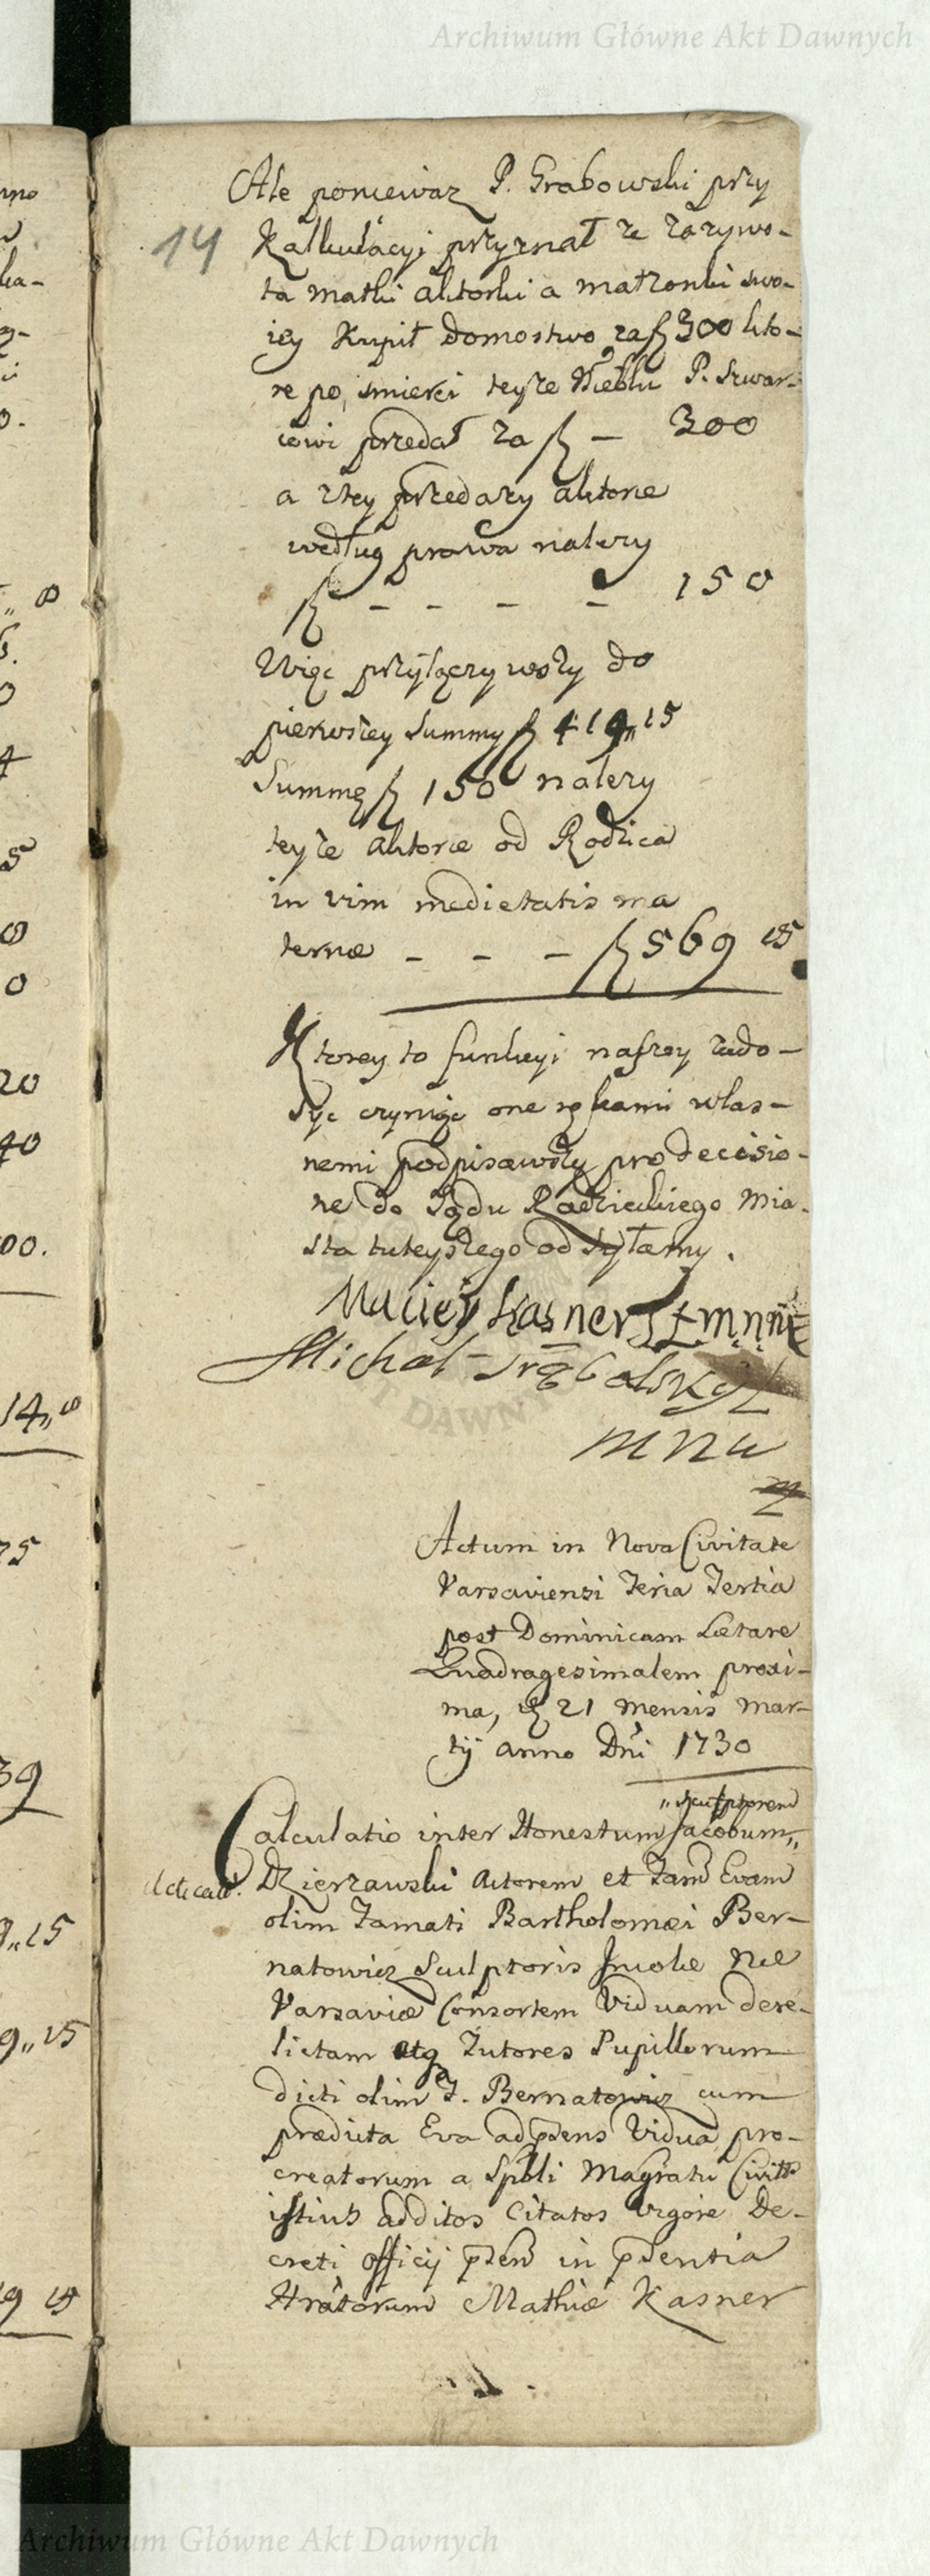 Archiwum Główne Akt Dawnych
14
Ale poniewaz P. Grabowski przy
Kalkulacyi przyznał ze zazywo-
ta matki aktorki a małzonki swo-
iey Kupił domostwo za fl 300 kto-
re po smierci teyze Meblu P. Szwar-
cowi przedał za fl — 300
a ztey przedazy aktorce
według prawa nalezy
fl - - - - 150
Więc przyłączywszy do
pierwszey Summy fl 419 „ 15
Summę fl 150 nalezy
teyze aktorce od Rodzica
in vim medietatis ma
ternæ - - - fl 569 15
Ktorey to funkcyi naszey zado-
syc czyniąc one rękami włas-
nemi podpisawszy pro decisio-
ne do Sądu Radzieckiego Mia-
sta tuteyszego odsyłamy.
Maciey Kasner
Michał
mnu
Actum in Nova Civitate
Varsaviensi Feria Tertia
post Dominicam Lætare
Quadragesimalem proxi-
ma, 21 mensis mar-
tij anno Dni 1730
„ sculptorem
Calculatio inter Honestum Jacobum „
Dzierzawski Actorem et Fam Evam
olim Famati Bartholomæi Ber-
natowicz Sculptoris Incolæ Næ
Varsaviæ Consortem Viduam dere-
lictam atq Tutores Pupillorum
dicti olim F. Bernatowicz cum
prædicta Eva ad psens Vidua pro-
creatorum a Spbli Magratu Civitt
istius additos Citatos vigore De-
creti officij psen in psentia
Hratorum Mathiæ Kasner
Archiwum Główne Akt Dawnych